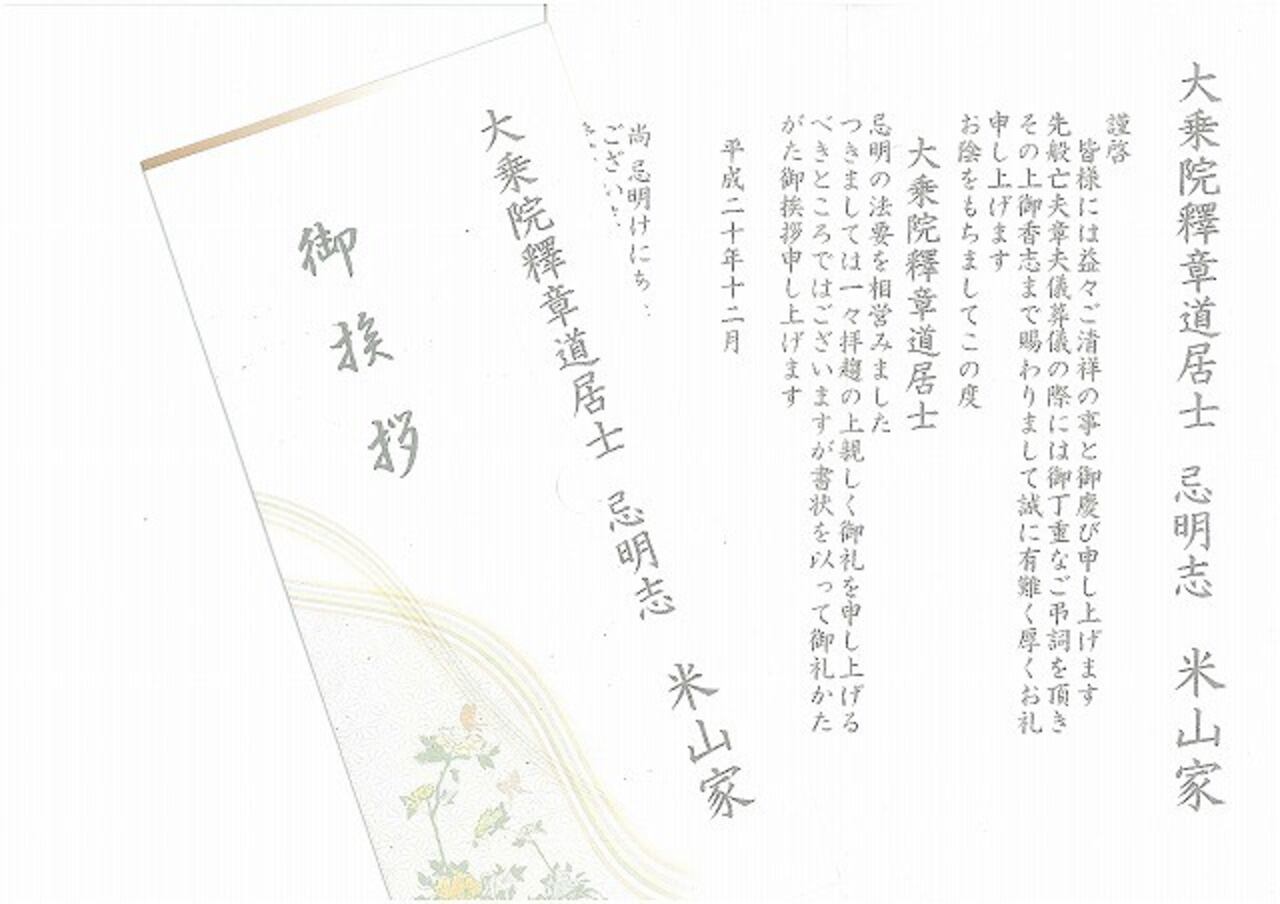 大乗院釋章道居士 忌明志 米山家
謹啓
皆様には益々ご清祥の事と御慶び申し上げます
先般亡夫章夫儀葬儀の際には御丁重なご弔詞を頂き
その上御香志まで賜わりまして誠に有難く厚くお礼
申し上げます
お陰をもちましてこの度
大乗院釋章道居士
忌明の法要を相営みました
つきましては一々拝趨の上親しく御礼を申し上げる
べきところではございますが書状を以って御礼かた
がた御挨拶申し上げます
平成二十年十二月
尚 忌明けにち
ござい
大乗院釋章道居士 忌明志 米山家
御挨拶